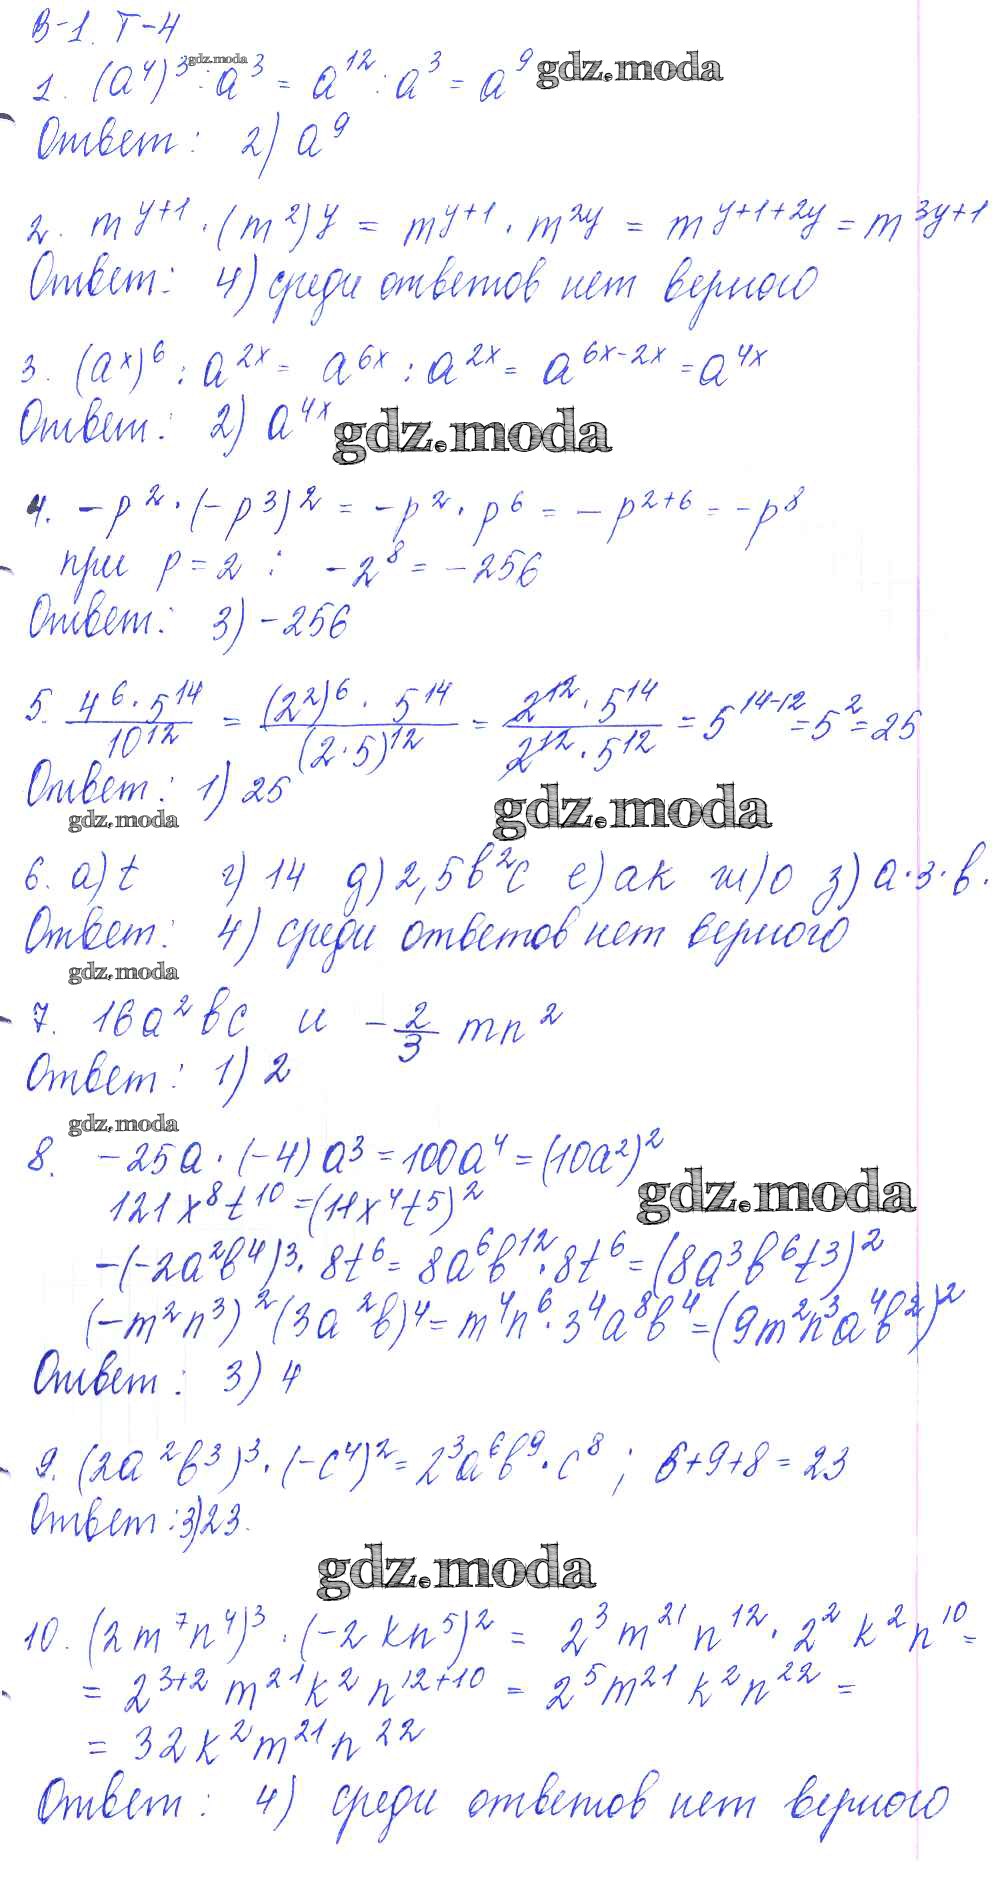 В-1. Т-4
gdz.moda
1. (a⁴)³ : a³ = a¹² : a³ = a⁹ gdz.moda
Ответ: 2) a⁹
2. m^(y+1) · (m²)^y = m^(y+1) · m^(2y) = m^(y+1+2y) = m^(3y+1)
Ответ: 4) среди ответов нет верного
3. (aˣ)⁶ : a^(2x) = a^(6x) : a^(2x) = a^(6x-2x) = a^(4x)
Ответ: 2) a^(4x) gdz.moda
4. -p² · (-p³)² = -p² · p⁶ = -p^(2+6) = -p⁸
при p = 2 : -2⁸ = -256
Ответ: 3) -256
5. (4⁶ · 5¹⁴)/10¹² = ((2²)⁶ · 5¹⁴)/(2·5)¹² = (2¹² · 5¹⁴)/(2¹² · 5¹²) = 5^(14-12) = 5² = 25
Ответ: 1) 25
gdz.moda gdz.moda
6. а) t г) 14 д) 2,5b²c е) ak ж) 0 з) a·3·b.
Ответ: 4) среди ответов нет верного
gdz.moda
7. 16a²bc и -2/3 mn²
Ответ: 1) 2
gdz.moda
8. -25a · (-4) a³ = 100a⁴ = (10a²)²
121x⁸t¹⁰ = (11x⁴t⁵)² gdz.moda
-(-2a²b⁴)³ · 8t⁶ = 8a⁶b¹² · 8t⁶ = (8a³b⁶t³)²
(-m²n³)² (3a²b)⁴ = m⁴n⁶ · 3⁴a⁸b⁴ = (9m²n³a⁴b²)²
Ответ: 3) 4
9. (2a²b³)³ · (-c⁴)² = 2³a⁶b⁹ · c⁸ ; 6+9+8 = 23
Ответ: 3) 23.
gdz.moda
10. (2m⁷n⁴)³ · (-2kn⁵)² = 2³m²¹n¹² · 2²k²n¹⁰ =
= 2^(3+2) m²¹k²n^(12+10) = 2⁵m²¹k²n²² =
= 32k²m²¹n²²
Ответ: 4) среди ответов нет верного